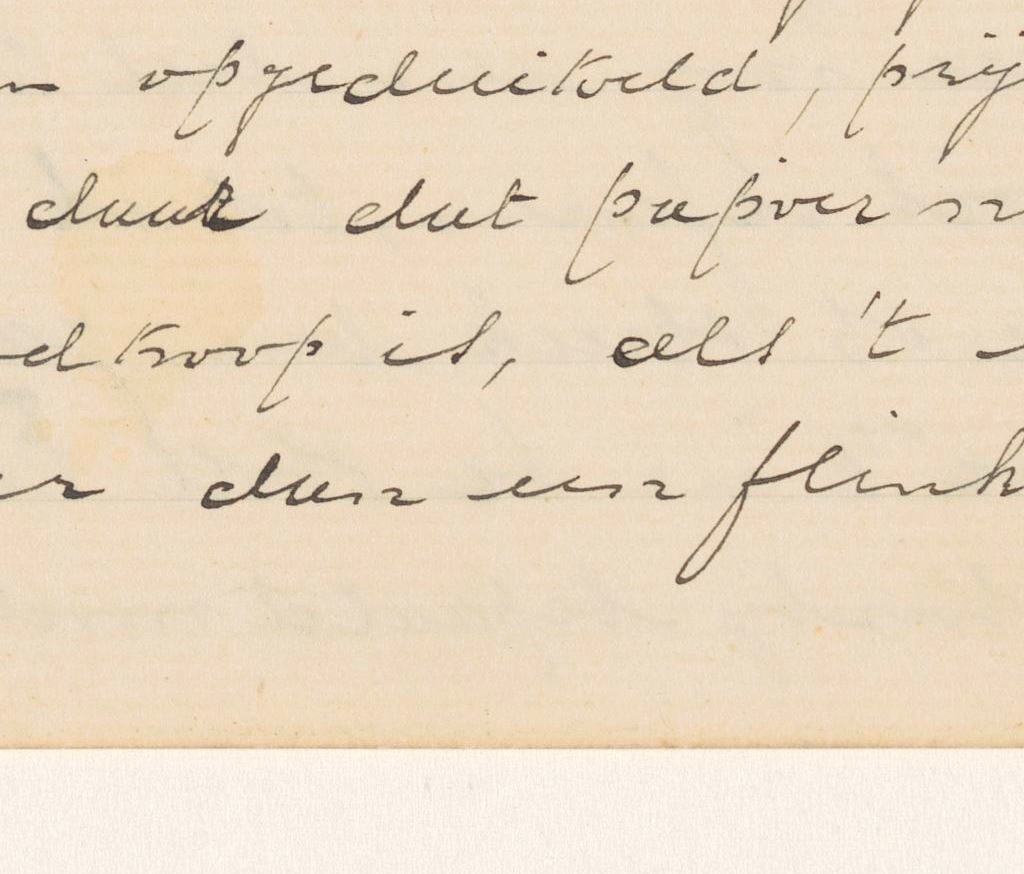 opgeduikeld, prij
daar dat papier n
dkoop is, als 't
er dan een flink